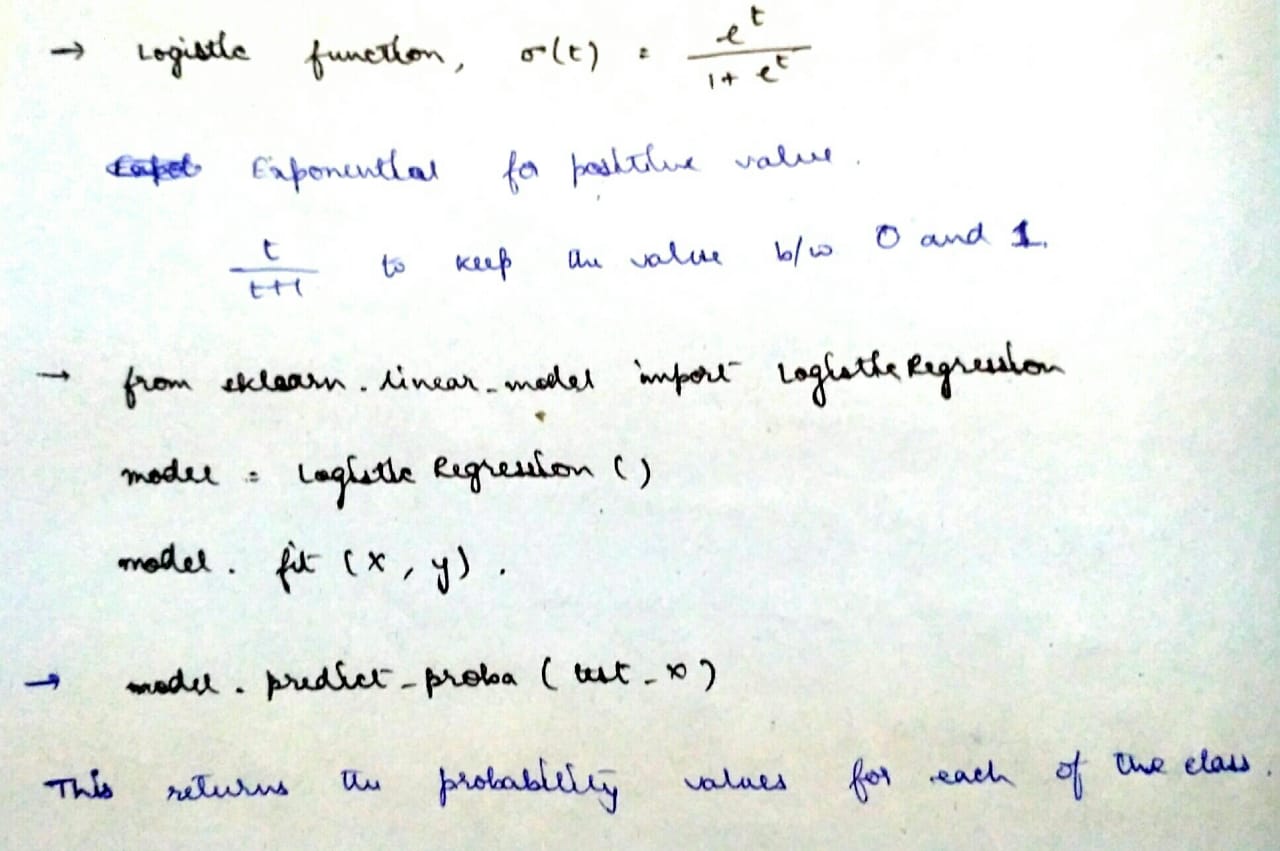 → Logistic function, σ(t) = e^t / (1 + e^t)
Exponential for positive value.
t / (t+1) to keep the value b/w 0 and 1.
→ from sklearn.linear_model import LogisticRegression
model = Logistic Regression ()
model. fit (x, y).
→ model. predict_proba (test_x)
This returns the probability values for each of the class.